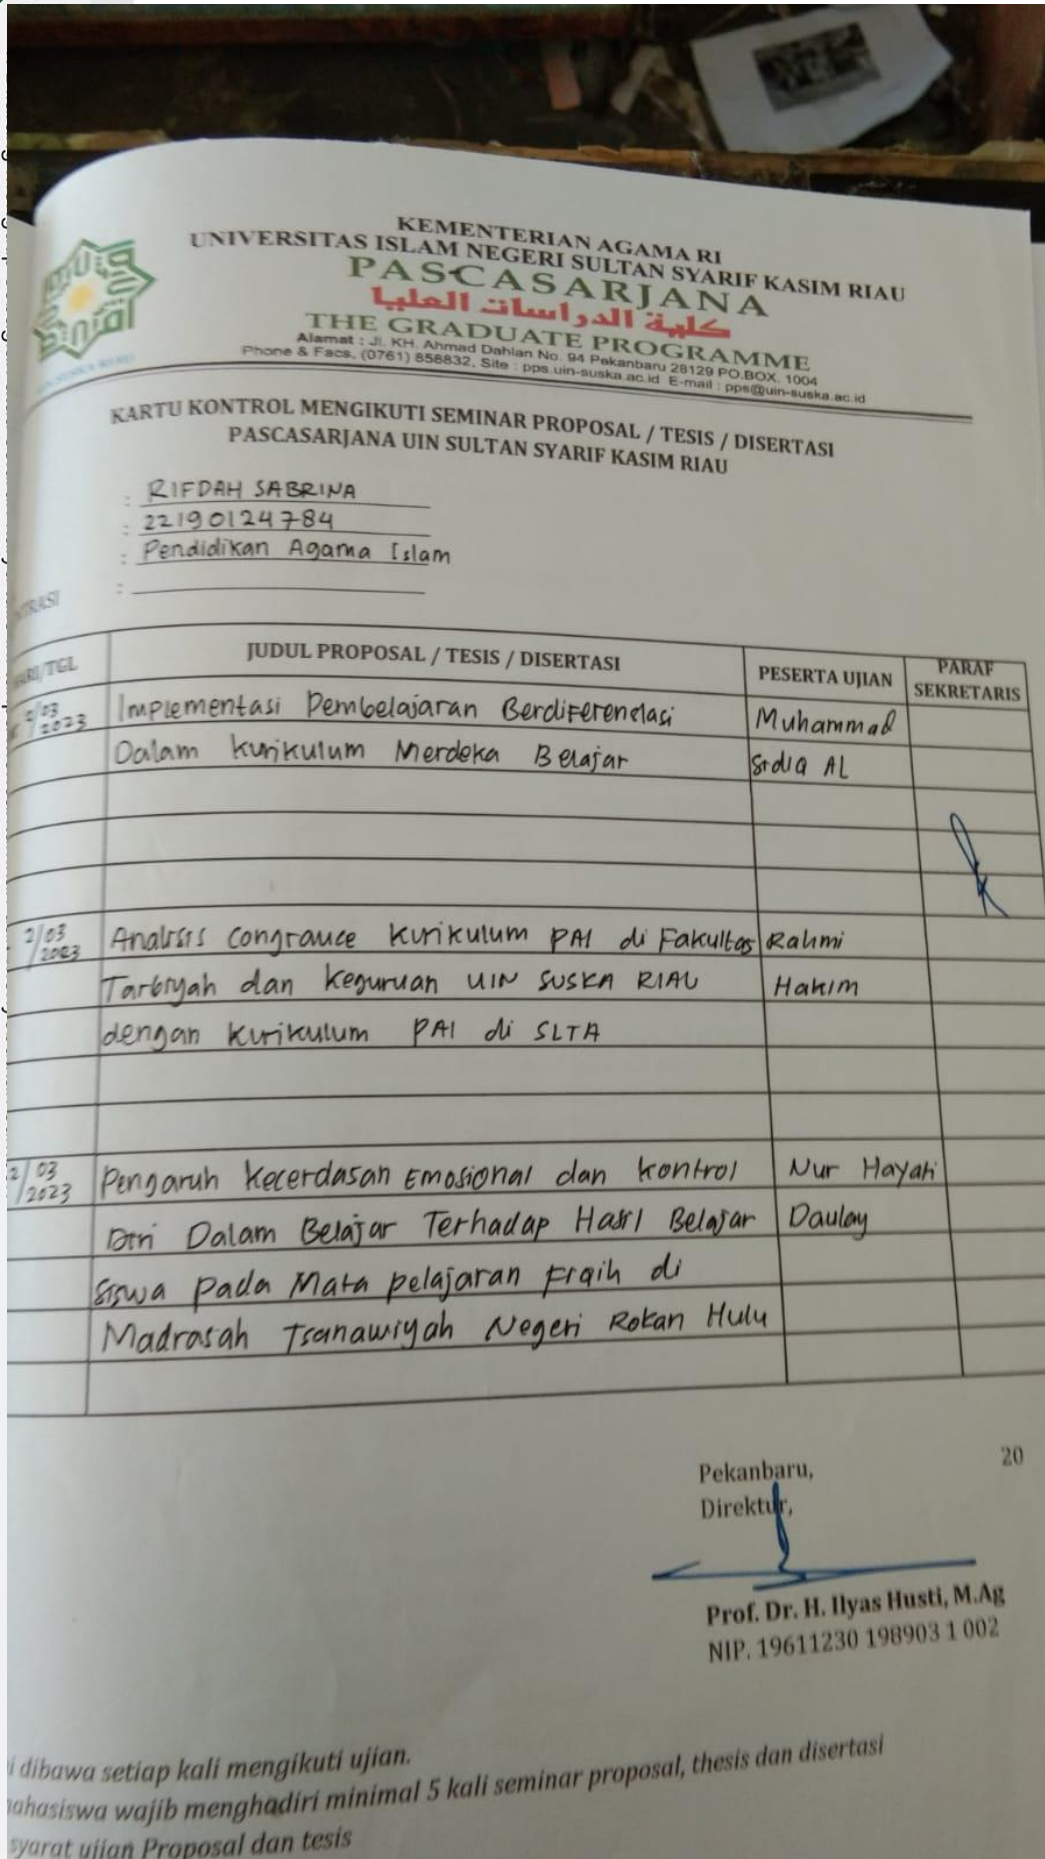 KEMENTERIAN AGAMA RI
UNIVERSITAS ISLAM NEGERI SULTAN SYARIF KASIM RIAU
PASCASARJANA
كلية الدراسات العليا
THE GRADUATE PROGRAMME
Alamat : Jl. KH. Ahmad Dahlan No. 94 Pekanbaru 28129 PO.BOX. 1004
Phone & Facs, (0761) 858832, Site : pps.uin-suska.ac.id E-mail : pps@uin-suska.ac.id
KARTU KONTROL MENGIKUTI SEMINAR PROPOSAL / TESIS / DISERTASI
PASCASARJANA UIN SULTAN SYARIF KASIM RIAU
: RIFDAH SABRINA
: 22190124784
: Pendidikan Agama Islam
:
JUDUL PROPOSAL / TESIS / DISERTASI PESERTA UJIAN PARAF SEKRETARIS
/03 2023 Implementasi Pembelajaran Berdiferenciasi Muhammad
Dalam Kurikulum Merdeka Belajar Sidiq AL
2/03 2023 Analisis Congruance Kurikulum PAI di Fakultas Rahmi
Tarbiyah dan Keguruan UIN SUSKA RIAU Hakim
dengan Kurikulum PAI di SLTA
2/03 2023 Pengaruh Kecerdasan Emosional dan Kontrol Nur Hayati
Diri Dalam Belajar Terhadap Hasil Belajar Daulay
Siswa Pada Mata pelajaran Fiqih di
Madrasah Tsanawiyah Negeri Rokan Hulu
Pekanbaru, 20
Direktur,
Prof. Dr. H. Ilyas Husti, M.Ag
NIP. 19611230 198903 1 002
i dibawa setiap kali mengikuti ujian.
ahasiswa wajib menghadiri minimal 5 kali seminar proposal, thesis dan disertasi
syarat ujian Proposal dan tesis